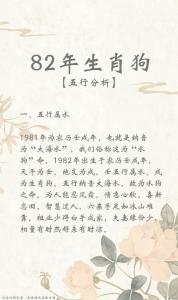 82年生肖狗
【五行分析】
一、五行属水
1981年为农历壬戌年，也就是纳音
为“大海水”，我们俗称这为“水
狗”命，1982年出生于农历壬戌年，
天干为壬，地支为戌，壬属行属水，戌
为生肖狗，五行纳音大海水，故为水狗
之命。为人能忍风霜，情意心软，喜新
忘旧，智慧过人，六亲手足如冰山难
靠，祖业少得白手成家，夫妻缘份少，
相量有时煞好未有财凉。